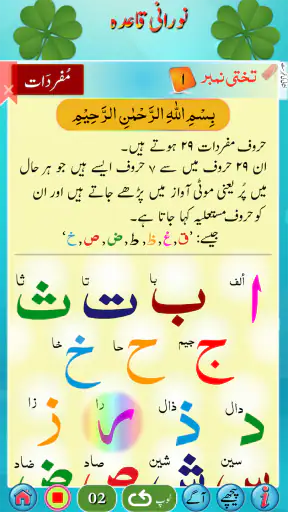 نورانی قاعدہ
تختی نمبر ۱
مُفرَدَات
بِسْمِ اللهِ الرَّحْمٰنِ الرَّحِيْمِ
حروف مفردات ۲۹ ہوتے ہیں۔
ان ۲۹ حروف میں سے ۷ حروف ایسے ہیں جو ہر حال
میں پُر یعنی موٹی آواز میں پڑھے جاتے ہیں اور ان
کو حروف مستعلیہ کہا جاتا ہے۔
جیسے: ’ق, غ, ظ, ط, ض, ص, خ‘
الف ا با ب تا ت ثا ث
جیم ج حا ح خا خ
دال د ذال ذ را ر زا ز
سین س شین ش صاد ص ضاد ض
02 لوپ آگے پیچھے